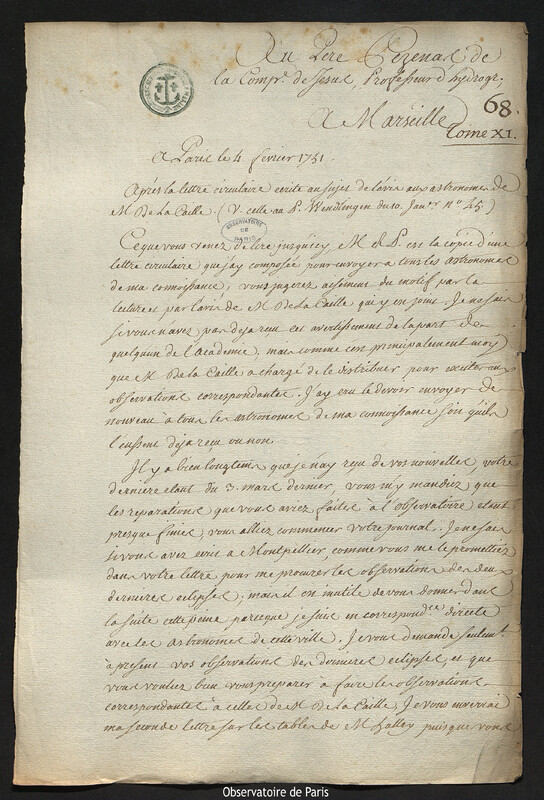 Au Pere Pezenas de
la Comp.e de Jesus, Professeur d'hydrogr.
A Marseille
68.
Tome XI.
a Paris le 4 fevrier 1751.
Après la lettre circulaire ecrite au sujet de l'avis aux astronomes de
M De la Caille. (V. celle au P. Wendlingen du 10. Janv.r n.o 25)
OBSERVATOIRE
DE
PARIS
Ce que vous venez de lire jusqu'icy M. R. P. est la copie d'une
lettre circulaire que j'ay composée pour envoyer a tous les astronomes
de ma connoissance; vous jugerez aisement du motif par la
lecture et par l'avis de M De la Caille qui y est joint. Je ne sais
si vous n'avez pas deja reçu cet avertissement de la part de
quelqu'un de l'Academie; mais comme c'est principalement moy
que M De la Caille a chargé de le distribuer pour exciter aux
observations correspondantes, j'ay cru le devoir envoyer de
nouveau à tous les astronomes de ma connoissance soit qu'ils
l'eussent deja reçu ou non.
Il y a bien longtems que je n'ay reçu de vos nouvelles, votre
derniere etant du 3. mars dernier, vous m'y mandiez que
les reparations que vous aviez faites à l'observatoire etant
presque finies, vous alliez commencer votre journal. Je ne sais
si vous avez ecrit à Montpellier comme vous me le promettiez
dans votre lettre pour me procurer les observations des deux
dernieres eclipses; mais il est inutile de vous donner dans
la suite cette peine parceque je suis en correspond.ce directe
avec les astronomes de cette ville. Je vous demande seulem.t
à present vos observations des dernieres eclipses, et que
vous vouliez bien vous preparer à faire les observations
correspondantes à celles de M De la Caille, Je vous enverrai
ma seconde lettre sur les tables de M. Halley puisque vous
Observatoire de Paris